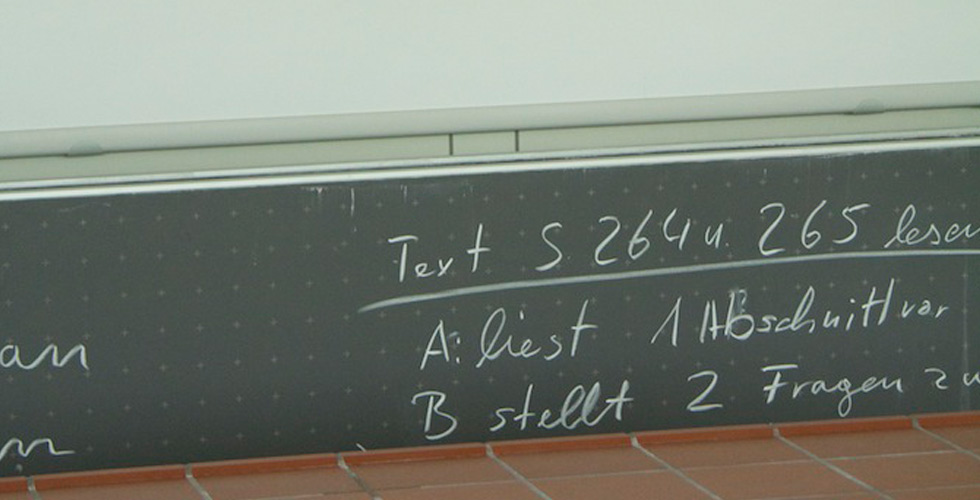 Text S 264 u. 265 lesen
A: liest 1 Abschnitt vor
B stellt 2 Fragen zu
an